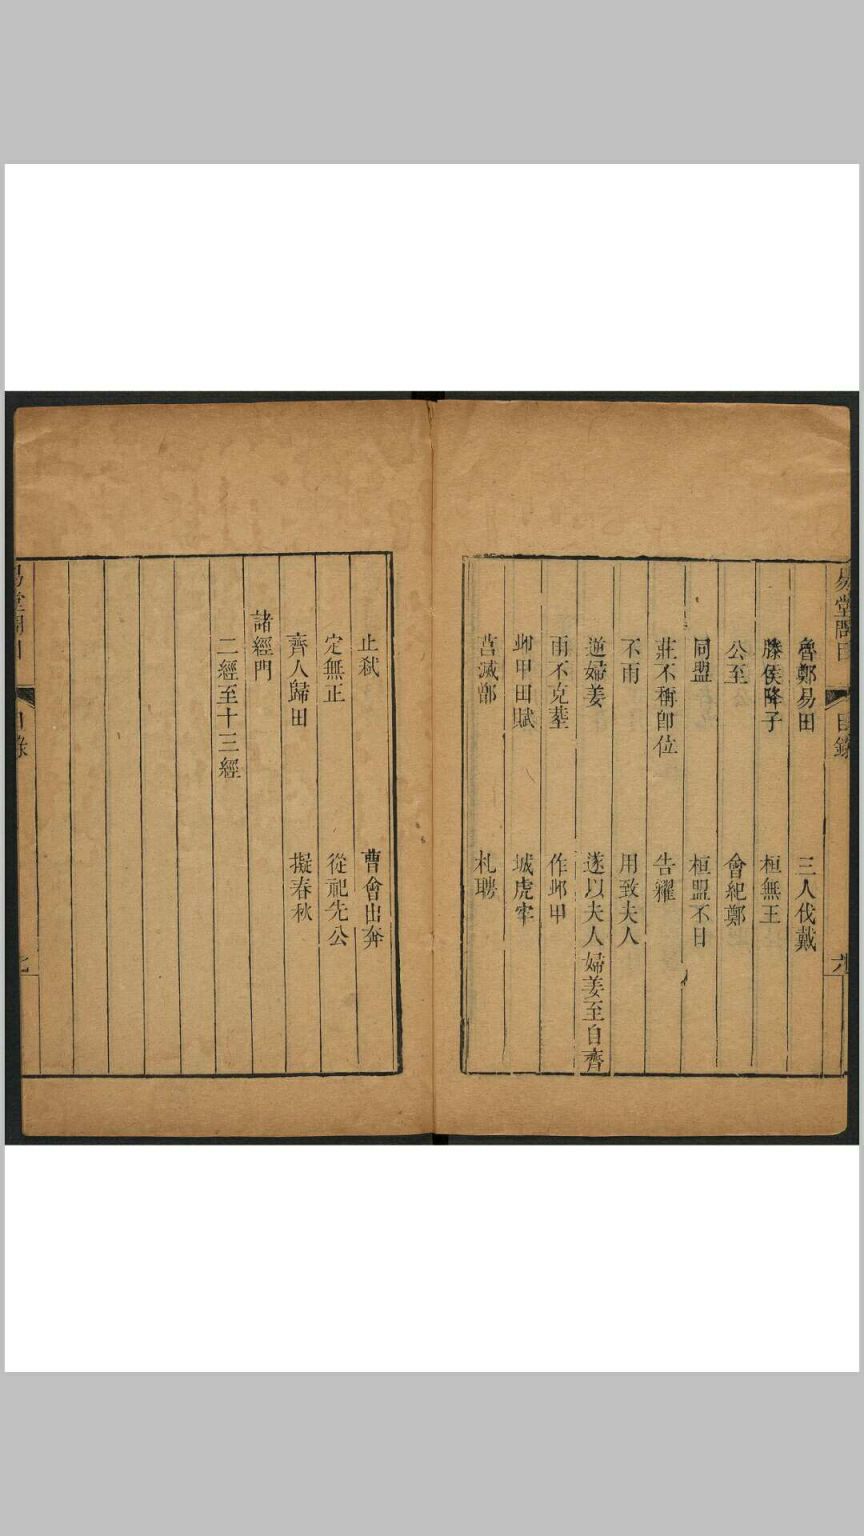 易堂問目
目錄
魯鄭易田　三人伐戴
滕侯降子　桓無王
公至　會紀鄭
同盟　桓盟不日
莊不稱即位　告糴
不雨　用致夫人
逆婦姜　遂以夫人婦姜至自齊
雨不克葬　作邱甲
邱甲田賦　城虎牢
莒滅鄫　札聘
止弒　曹會出奔
定無正　從祀先公
齊人歸田　擬春秋
諸經門
二經至十三經
易堂問目
目錄